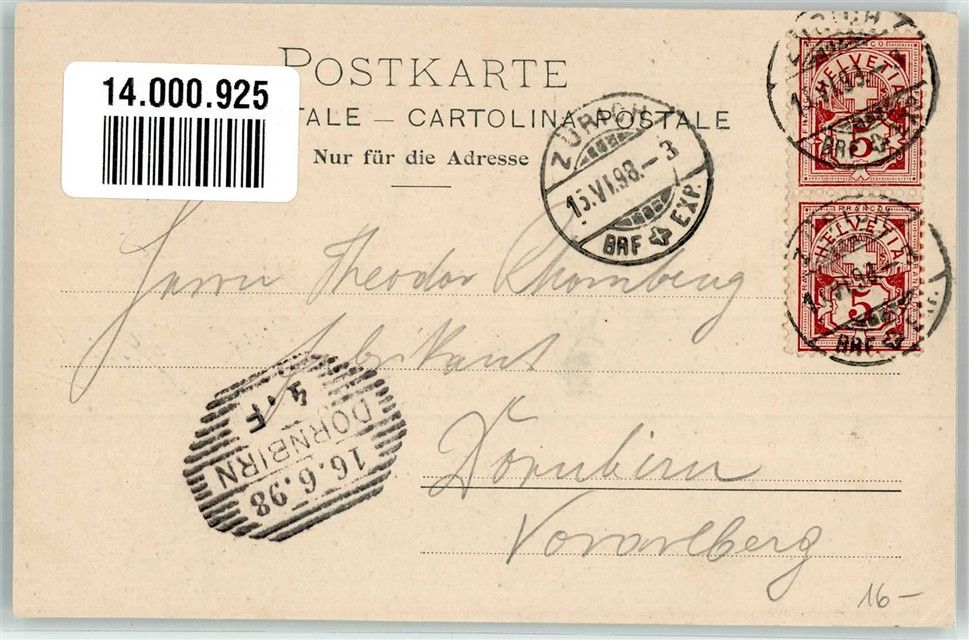 14.000.925
POSTKARTE
TALE — CARTOLINA POSTALE
Nur für die Adresse
ZÜRICH
15.VI.98.—3
BRF EXP.
FRANCO
HELVETIA
5
BRF
FRANCO
HELVETIA
5
BRF
Herrn Theodor Rhomberg
Fabrikant
Dornbirn
Vorarlberg
DORNBIRN
16.6.98
4.F
16—